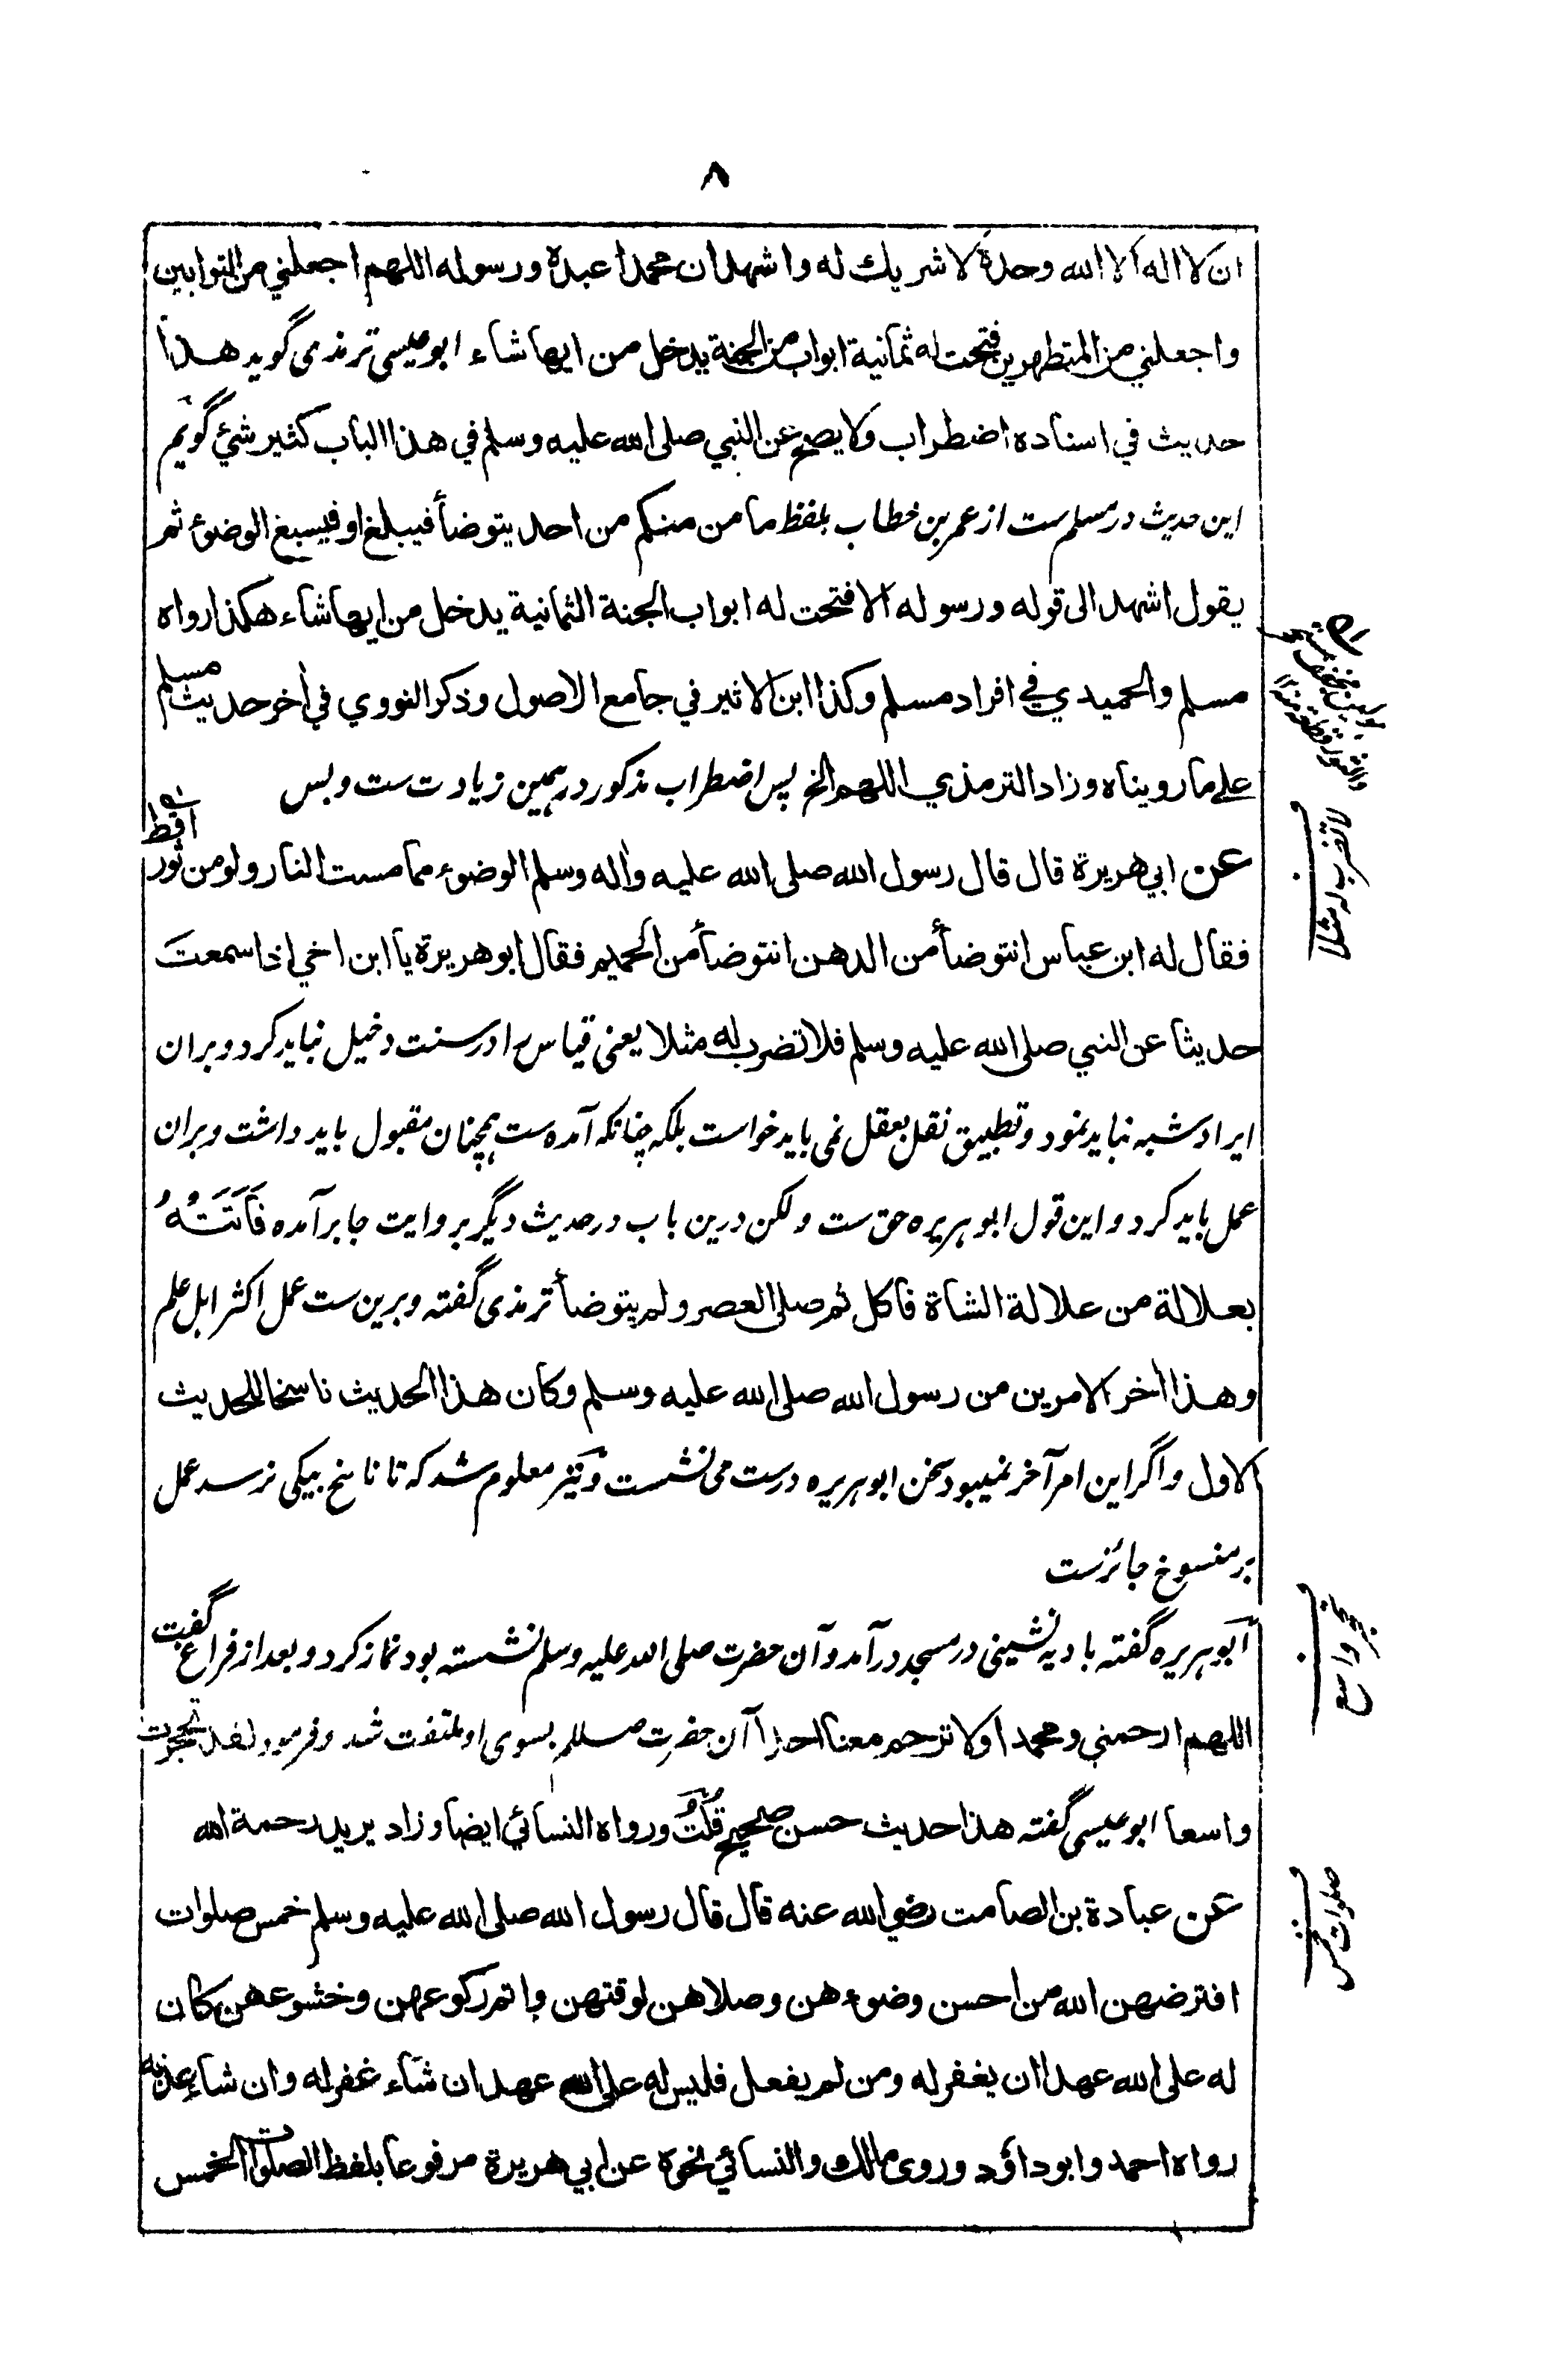 ٨
ان لا اله الا الله وحدة لا شريك له واشهد ان محمدا عبدة ورسوله اللهم اجعلني من التوابين
واجعلني من المتطهرين فتحت له ثمانية ابواب من الجنة يدخل من ايها شاء ابو عيسى ترمذى گويد هذا
حديث في اسناده اضطراب ولا يصح عن النبي صلى الله عليه وسلم في هذا الباب كثير شئ گويم
اين حديث در مسلم ست از عمر بن خطاب بلفظ ما من منكم من احد يتوضأ فيبلغ او فيسبغ الوضوء ثم
يقول اشهد الى قوله ورسوله الا فتحت له ابواب الجنة الثمانية يدخل من ايها شاء هكذا رواه
مسلم والحميدي في افراد مسلم وكذا ابن الاثير في جامع الاصول وذكر النووي في أخر حديث مسلم
على ما رويناه وزاد الترمذي اللهم الخ پس اضطراب مذكور در همين زيادت ست وبس
عن ابي هريرة قال قال رسول الله صلى الله عليه واله وسلم الوضوء مما مست النار ولو من ثور اقط
فقال له ابن عباس انتوضأ من الدهن انتوضأ من الحميم فقال ابو هريرة يا ابن اخي اذا سمعت
حديثا عن النبي صلى الله عليه وسلم فلا تضرب له مثلا يعنى قياس را در سنت دخيل نبايد كرد و بران
ايراد شبه نبايد نمود و تطبيق نقل بعقل نمى بايد خواست بلكه چنانكه آمده ست همچنان مقبول بايد داشت و بران
عمل بايد كرد و اين قول ابو هريره حق ست و لكن درين باب در حديث ديگر بروايت جابر آمده فَأَتَتْهُ
بعلالة من علالة الشاة فاكل ثم صلى العصر ولم يتوضأ ترمذى گفته و برين ست عمل اكثر اهل علم
وهذا أخر الامرين من رسول الله صلى الله عليه وسلم وكان هذا الحديث ناسخا للحديث
الاول و اگر اين امر آخر نميبود سخن ابو هريره درست مى نشست و نيز معلوم شد كه تا ناسخ بيكى نرسد عمل
بر منسوخ جائزست
ابو هريره گفته باديه نشينى در مسجد در آمد و آن حضرت صلى الله عليه وسلم نشسته بود نماز كرد و بعد از فراغ گفت
اللهم ارحمني ومحمدا ولا ترحم معنا احدا آن حضرت صللم بسوى او ملتفت شد و فرمود لقد تحجرت
واسعا ابو عيسى گفته هذا حديث حسن صحيح قُلْتُ ورواه النسائي ايضا وزاد يريد رحمة الله
عن عبادة بن الصامت رضي الله عنه قال قال رسول الله صلى الله عليه وسلم خمس صلوات
افترضهن الله من احسن وضوءهن وصلاهن لوقتهن واتم ركوعهن وخشوعهن كان
له على الله عهدا ان يغفر له ومن لم يفعل فليس له على الله عهد ان شاء غفر له وان شاء عذبه
رواه احمد وابو داؤد وروى مالك والنسائي نحوه عن ابي هريرة مرفوعا بلفظ الصلوات الخمس
لا تضرب له مثلا
تحجر واسع
صلوات خمس